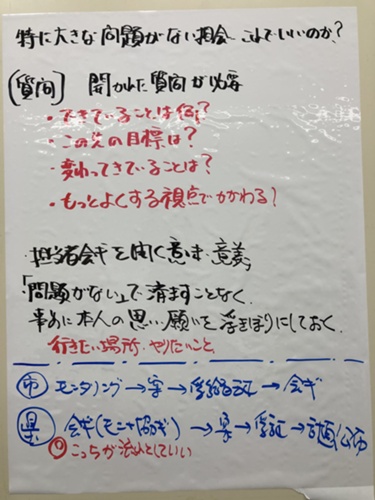 特に大きな問題がない場合 これでいいのか?
[質問] 開かれた質問が必要
・できていることは何?
・この先の目標は?
・変わってきていることは?
・もっとよくする視点でかかわる!
・担当者会ギを開く意味・意義
「問題がない」で済ますことなく、
事前に本人の思い・願いを浮きぼりにしておく。
行きたい場所・やりたいこと
市 モニタリング→案→受給者証→会ギ
県 会ギ(モニタ 協ギ)→案→受証→計画
こっちが法人としていい